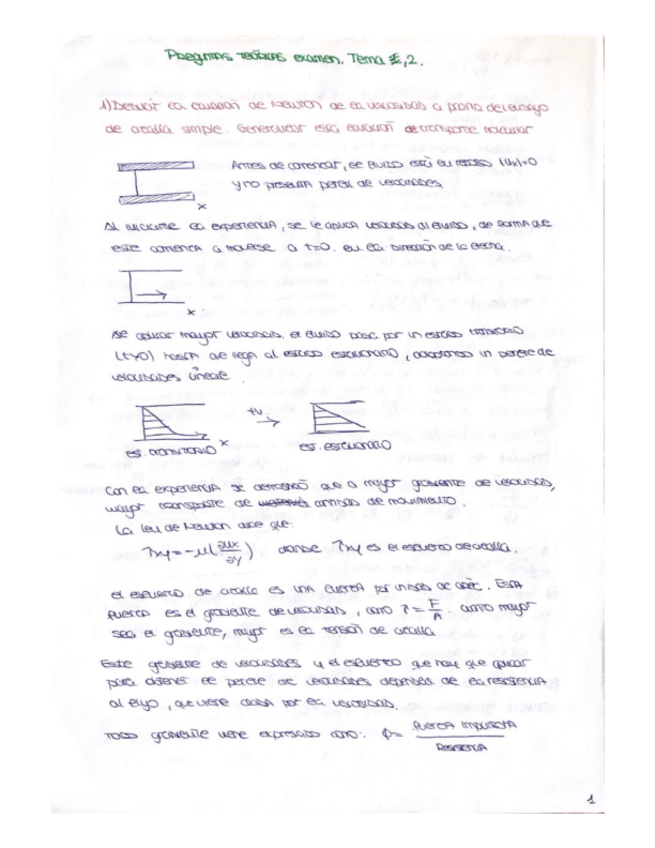 Preguntas teóricas examen. Tema 1, 2.
1) Deducir la ecuación de Newton de la viscosidad a partir del ensayo
de cizalla simple. Generalizar esta ecuación de transporte molecular
Antes de comenzar, el fluido está en reposo (Ux)=0
y no presenta perfil de velocidades.
x
Al iniciarse la experiencia, se le aplica velocidad al fluido, de forma que
este comienza a moverse a t=0. en la dirección de la flecha.
x
Al aplicar mayor velocidad. el fluido pasa por un estado transitorio
(t>0) hasta que llega al estado estacionario, adoptando un perfil de
velocidades lineal.
tu
x
est. transitorio
est. estacionario
Con la experiencia se demostró que a mayor gradiente de velocidad,
mayor transporte de cantidad de movimiento.
La ley de Newton dice que:
τxy = -μ(∂ux/∂y) donde τxy es el esfuerzo de cizalla.
el esfuerzo de cizalla es una fuerza por unidad de área. Esta
fuerza es el gradiente de velocidades, como τ = F/A. Cuanto mayor
sea el gradiente, mayor es la tensión de cizalla
Este gradiente de velocidades y el esfuerzo que hay que aplicar
para obtener el perfil de velocidades depende de la resistencia
al flujo, que viene dada por la viscosidad.
Todo gradiente viene expresado como: φ = fuerza impulsora / Resistencia
1